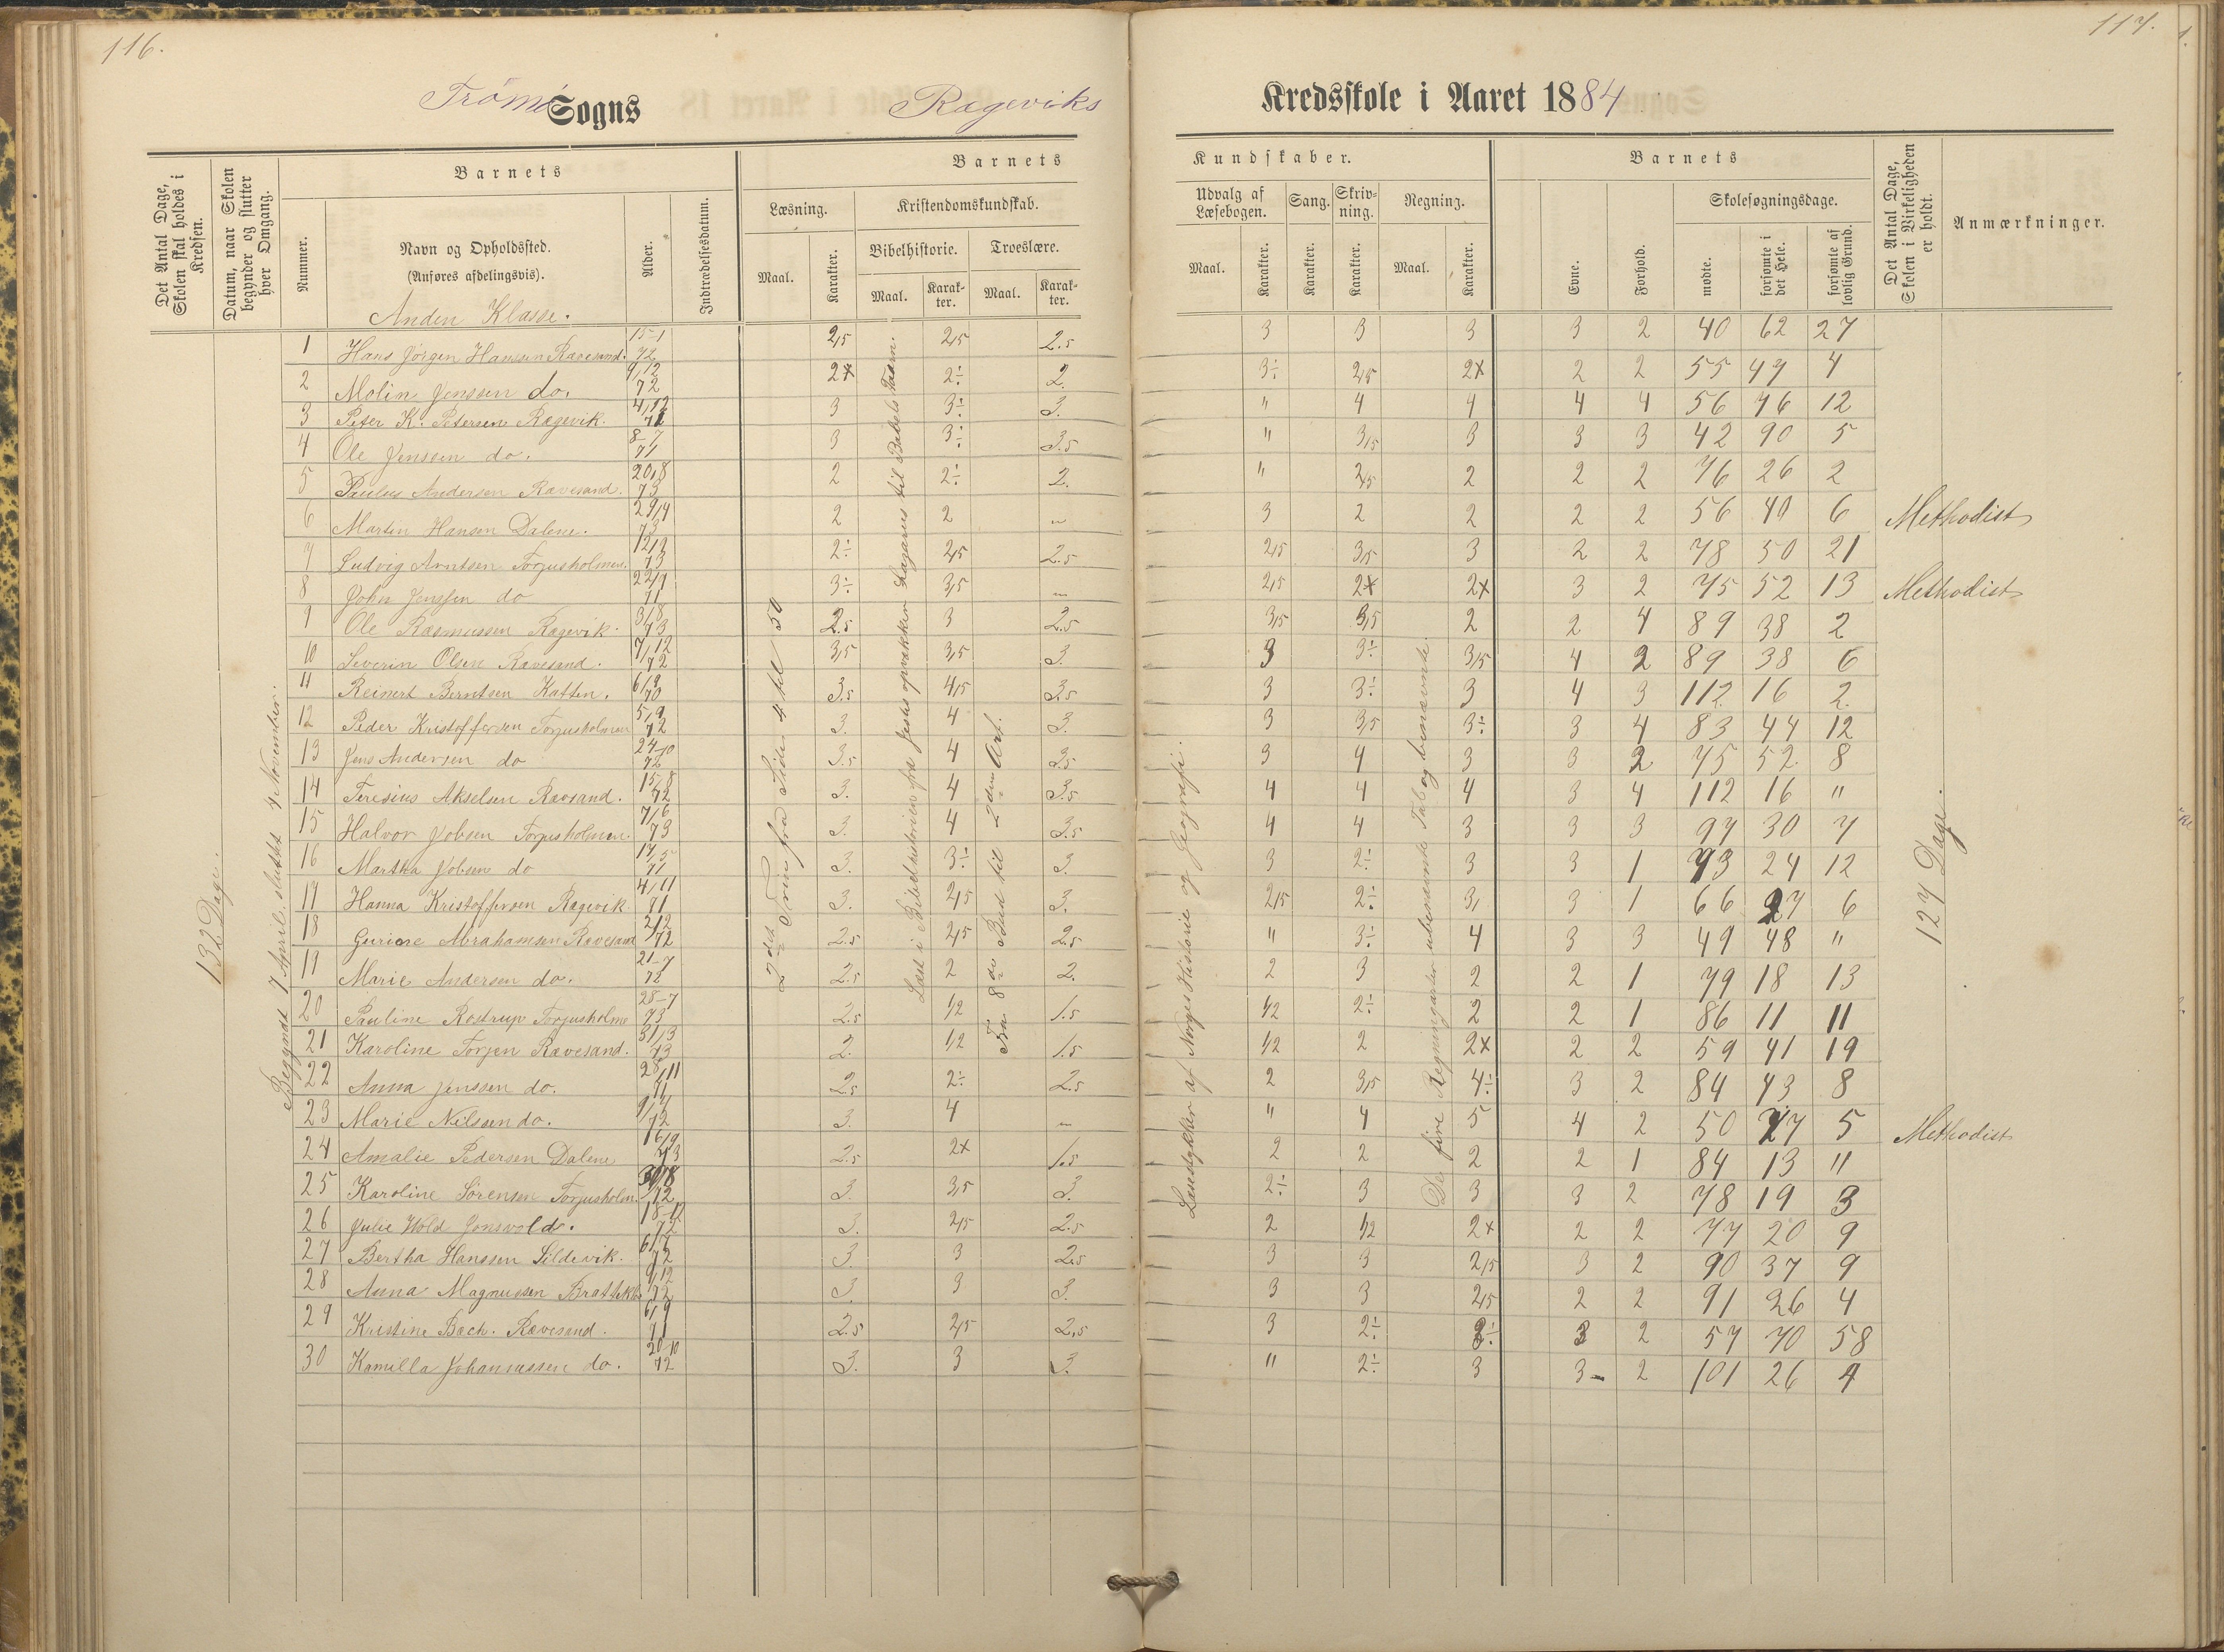 116.
117.
Trömö Sogns Rægeviks Kredsskole i Aaret 1884
Det Antal Dage, Skolen skal holdes i Kredsen.
Datum, naar Skolen begynder og slutter hver Omgang.
Barnets
Nummer.
Navn og Opholdssted.
(Anføres afdelingsvis).
Alder.
Indtrædelsesdatum.
Barnets Kundskaber.
Læsning.
Maal.
Karakter.
Kristendomskundskab.
Bibelhistorie.
Maal.
Karakter.
Troeslære.
Maal.
Karakter.
Udvalg af Læsebogen.
Maal.
Karakter.
Sang.
Karakter.
Skrivning.
Karakter.
Regning.
Maal.
Karakter.
Barnets
Evne.
Forhold.
Skolesøgningsdage.
mødte.
forsømte i det Hele.
forsømte af lovlig Grund.
Det Antal Dage, Skolen i Virkeligheden er holdt.
Anmærkninger.
Anden Klasse.
132 Dage.
Begyndt 7 April, sluttet 4 November.
2det Trin fra Side 4 til 50
Læst i Bibelhistorien fra Jesus opvækker Lazarus til Babels Taarn.
Fra 8de Bud til 2den Art.
Læsestykker af Norges Historie og Geografi.
De fire Regningarter ubenævnte Tal og benævnte.
127 Dage.
1 Hans Jørgen Hanssen Ravesand. 15-1 72 2,5 2,5 2.5 3 3 3 3 2 40 62 27
2 Molin Jenssen do. 9/12 72 2+ 2÷ 2. 3÷ 2,5 2+ 2 2 55 47 4
3 Peter K. Petersen Rægevik. 4/12 71 3 3÷ 3. " 4 4 4 4 56 46 12
4 Ole Jenssen do. 8-7 71 3 3÷ 3.5 " 3,5 3 3 3 42 90 5
5 Paulus Andersen Ravesand. 20/8 73 2 2÷ 2. " 2,5 2 2 2 76 26 2
6 Martin Hansen Dalene. 29/4 73 2 2 — 3 2 2 2 2 56 40 6 Methodist
7 Ludvig Arntsen Torjusholmen. 12/2 73 2÷ 2,5 2.5 2,5 3,5 3 2 2 78 50 21
8 John Jenssen do 22/1 71 3÷ 3,5 — 2,5 2+ 2+ 3 2 75 52 13 Methodist
9 Ole Rasmussen Ragevik. 3/8 73 2.5 3 2.5 3,5 3,5 2 2 4 89 38 2
10 Severin Olsen Ravesand. 7/12 72 3,5 3,5 3. 3 3÷ 3,5 4 2 89 38 6
11 Reinert Berntsen Katten. 6/8 70 3.5 4,5 3.5 3 3÷ 3 4 3 112 16 2.
12 Peder Kristoffersen Torjusholmen 5/9 72 3. 4 3. 3 3,5 3÷ 3 4 83 44 12
13 Jens Andersen do 24-10 72 3.5 4 3.5 3 4 3 3 2 75 52 8
14 Teresius Akselsen Ravsand. 15/8 72 3. 4 3.5 4 4 4 3 4 112 16 "
15 Halvor Jobsen Torjusholmen. 7/6 73 3. 4 3.5 4 4 3 3 3 97 30 7
16 Martha Jobsen do 17/5 71 3. 3÷ 3. 3 2÷ 3 3 1 93 24 12
17 Hanna Kristoffersen Rægevik. 4/11 71 3. 2,5 3. 2,5 2÷ 3, 3 1 66 27 6
18 Gurine Abrahamsen Ravesand 2/12 72 2.5 2,5 2.5 " 3÷ 4 3 3 49 48 "
19 Marie Andersen do. 21-7 72 2.5 2 2. 2 3 2 2 1 79 18 13
20 Pauline Rostrup Torjusholme 28-7 73 2.5 1/2 1.5 1/2 2÷ 2 2 1 86 11 11
21 Karoline Torjen Ravesand. 31/3 73 2. 1/2 1.5 1/2 2 2+ 2 2 59 41 19
22 Anna Jenssen do. 28/11 71 2.5 2÷ 2.5 2 3,5 4÷ 3 2 84 43 8
23 Marie Nilssen do. 9/4 72 3. 4 — " 4 5 4 2 50 77 5 Methodist
24 Amalie Pedersen Dalene 16/9 73 2.5 2+ 1.5 2 2 2 2 1 84 13 "
25 Karoline Sörensen Torjusholm. 30/8 72 3. 3,5 3. 2÷ 3 3 3 2 78 19 3
26 Julie Wold Jonsvold. 18-12 72 3. 2,5 2.5 2 1/2 2+ 2 2 77 20 9
27 Bertha Hanssen Sildevik. 6/7 72 3. 3 2.5 3 3 2,5 3 2 90 37 9
28 Anna Magnussen Brattekl. 9/12 72 3. 3 3. 3 3 2,5 2 2 91 26 4
29 Kristine Bach. Ravesand. 6/9 71 2.5 2,5 2,5 3 2÷ 3÷ 3 2 57 70 58
30 Kamilla Johannessen do. 20-10 72 3. 3 3. " 2÷ 3 3- 2 101 26 4